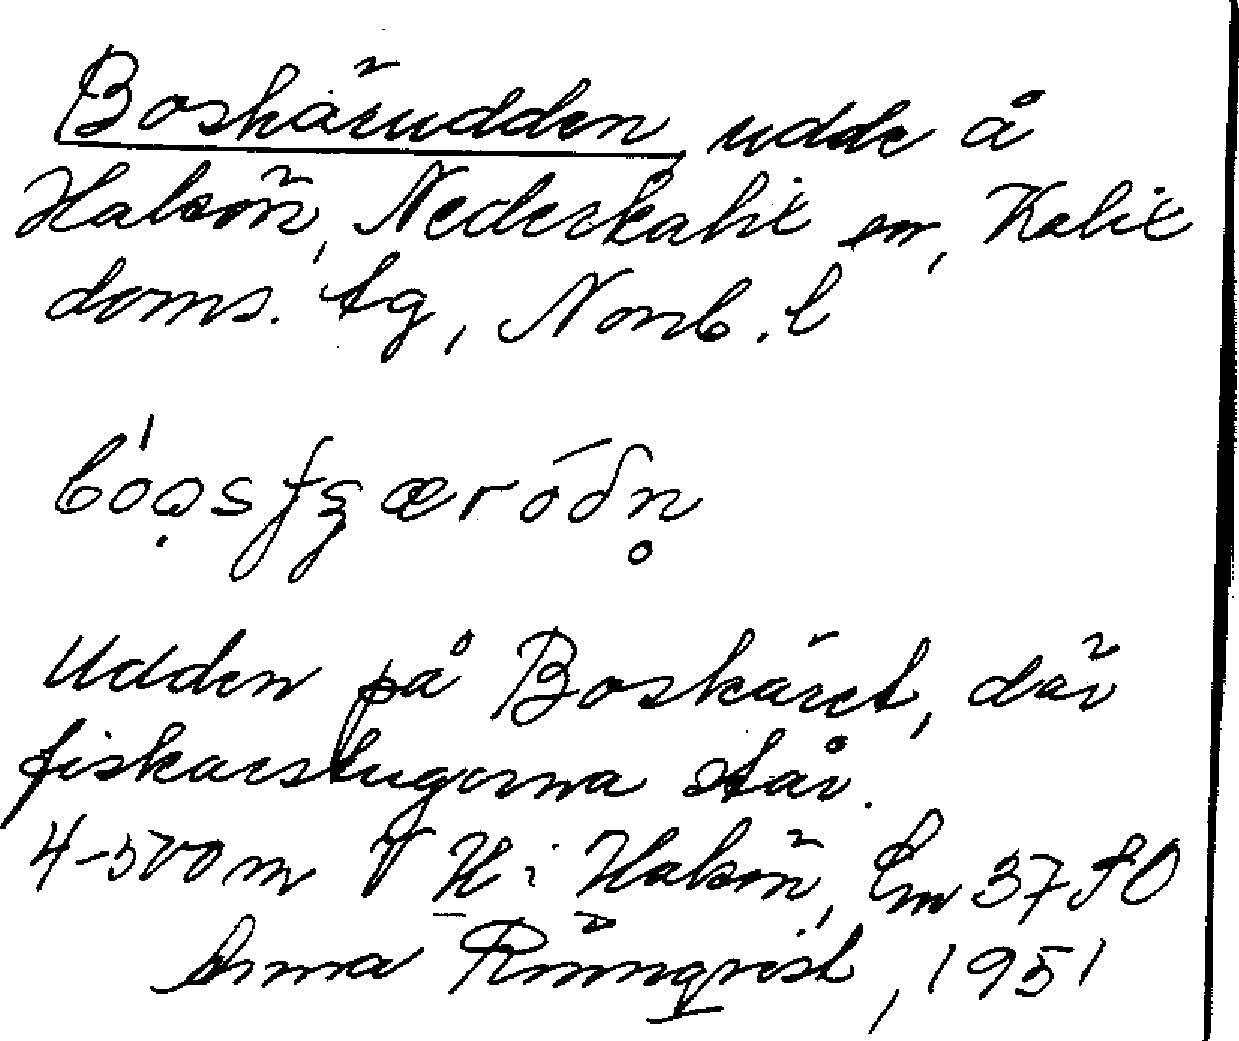 Boskärudden, udde å
Halsön, Nederkalix sn, Kalix
doms. tg, Norrb. l
Udden på Boskäret, där
fiskarstugorna står.
4-500 m V H i Halsön, Em 37 SO
Anna Rönnqvist, 1951